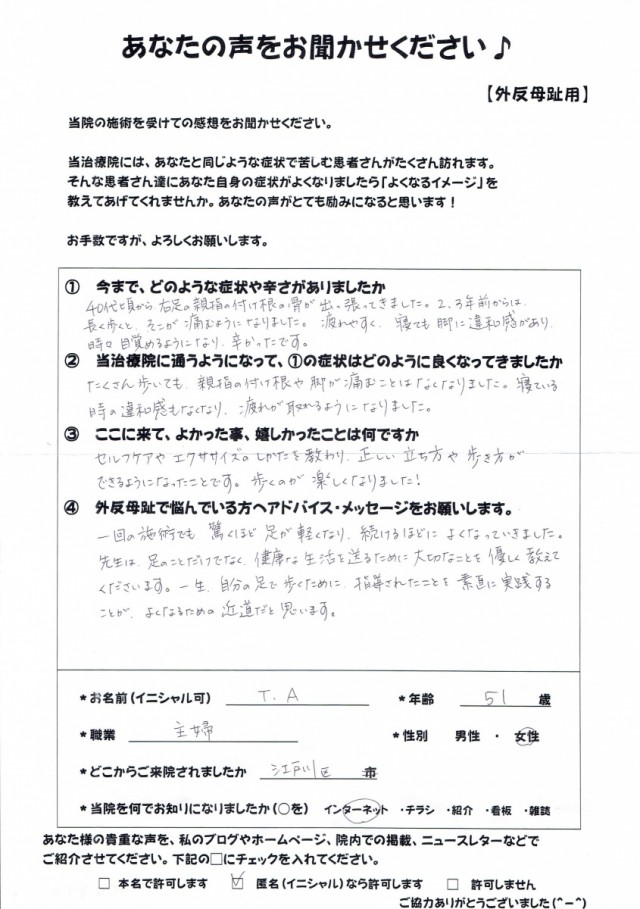 あなたの声をお聞かせください♪
【外反母趾用】
当院の施術を受けての感想をお聞かせください。
当治療院には、あなたと同じような症状で苦しむ患者さんがたくさん訪れます。
そんな患者さん達にあなた自身の症状がよくなりましたら「よくなるイメージ」を
教えてあげてくれませんか。あなたの声がとても励みになると思います！
お手数ですが、よろしくお願いします。
① 今まで、どのような症状や辛さがありましたか
40代頃から右足の親指の付け根の骨が出っ張ってきました。2、3年前からは、
長く歩くと、そこが痛むようになりました。疲れやすく、寝ても脚に違和感があり、
時々目覚めるようになり、辛かったです。
② 当治療院に通うようになって、①の症状はどのように良くなってきましたか
たくさん歩いても、親指の付け根や脚が痛むことはなくなりました。寝ている
時の違和感もなくなり、疲れが取れるようになりました。
③ ここに来て、よかった事、嬉しかったことは何ですか
セルフケアやエクササイズのしかたを教わり、正しい立ち方や歩き方が
できるようになったことです。歩くのが楽しくなりました!
④ 外反母趾で悩んでいる方へアドバイス・メッセージをお願いします。
一回の施術でも驚くほど足が軽くなり、続けるほどによくなっていきました。
先生は、足のことだけでなく、健康な生活を送るために大切なことを優しく教えて
くださいます。一生、自分の足で歩くために、指導されたことを素直に実践する
ことが、よくなるための近道だと思います。
*お名前(イニシャル可) T.A *年齢 51 歳
*職業 主婦 *性別 男性 ・ 女性
*どこからご来院されましたか 江戸川区 市
*当院を何でお知りになりましたか(○を) インターネット ・チラシ ・紹介 ・看板 ・雑誌
あなた様の貴重な声を、私のブログやホームページ、院内での掲載、ニュースレターなどで
ご紹介させてください。下記の□にチェックを入れてください。
□ 本名で許可します ☑ 匿名(イニシャル)なら許可します □ 許可しません
ご協力ありがとうございました(^-^)